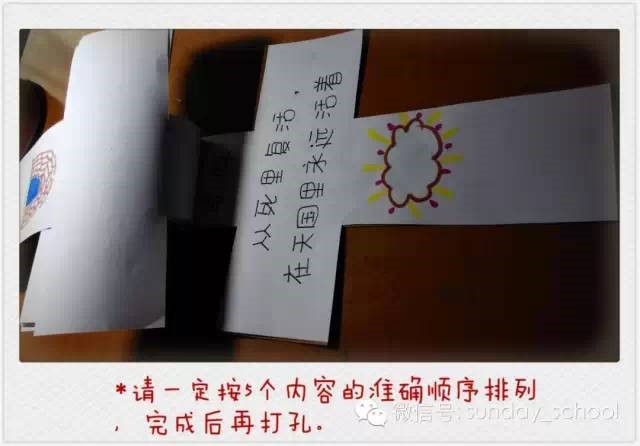 从死里复活，
在天国里永远活着
*请一定按5个内容的准确顺序排列
，完成后再打孔。
微信号: sunday_school